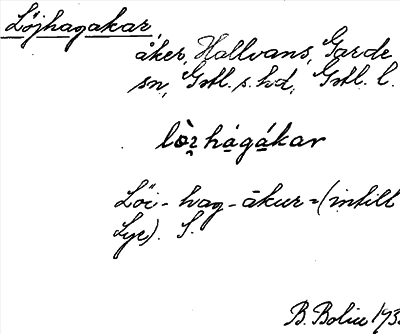 Löjhagakar,
åker, Hallvans, Garde
sn, Gotl. s. hd, Gotl. l.
lòʒ hágákar
Löi - hag - ākur = (intill
Lye). S.
B. Bolin 193